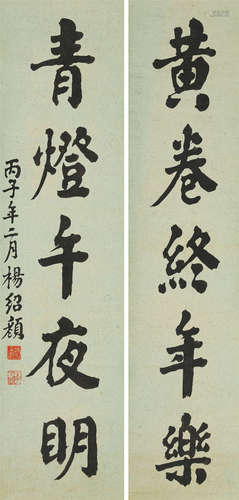 黃卷終年樂
青燈午夜明
丙子年二月楊紹顏